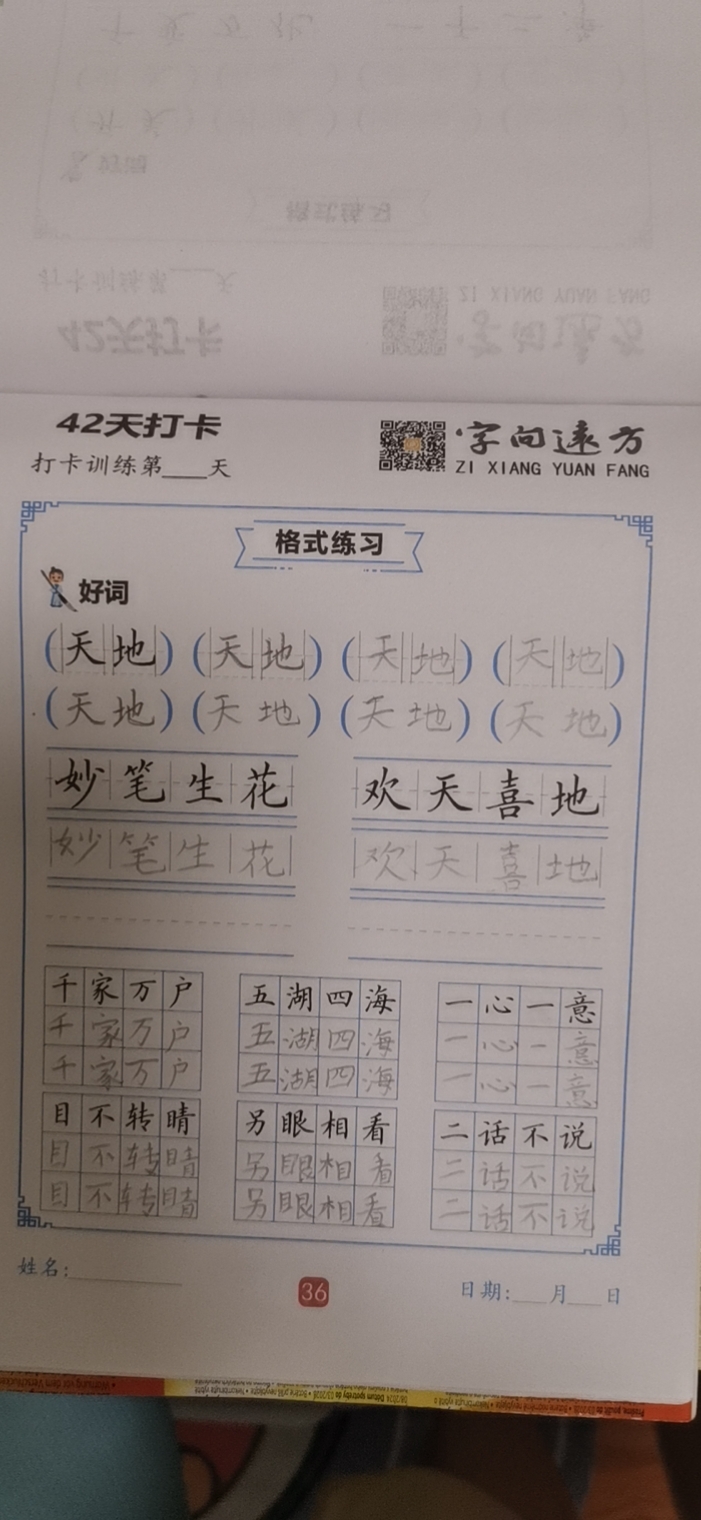 42天打卡
字向远方
打卡训练第___天
ZI XIANG YUAN FANG
格式练习
好词
(天地) (天地) (天地) (天地)
(天地) (天地) (天地) (天地)
妙笔生花 欢天喜地
妙笔生花 欢天喜地
千家万户 五湖四海 一心一意
千家万户 五湖四海 一心一意
千家万户 五湖四海 一心一意
目不转晴 另眼相看 二话不说
目不转晴 另眼相看 二话不说
目不转睛 另眼相看 二话不说
姓名:________ 36 日期:___月___日